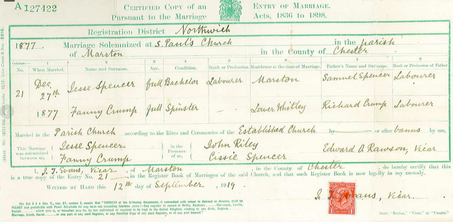 A 127422
CERTIFIED COPY of an ENTRY OF MARRIAGE.
Pursuant to the Marriage Acts, 1836 to 1898.
Registration District Northwich
1877. Marriage Solemnized at S. Paul's Church in the parish
of Marston in the County of Chester
When Married. Name and Surname. Age. Condition. Rank or Profession. Residence at the time of Marriage. Father's Name and Surname. Rank or Profession of Father.
21 Dec 27th 1877 Jesse Spencer full Bachelor Labourer Marston Samuel Spencer Labourer
Fanny Crump full Spinster Lower Whitley Richard Crump Labourer
Married in the Parish Church according to the Rites and Ceremonies of the Established Church by or after banns by me,
This Marriage was solemnized between us, Jesse Spencer Fanny Crump in the Presence of us, John Riley Cissie Spencer Edward A Rawson, Vicar
I, J. T. Evans, Vicar, of Marston, in the County of Chester, do hereby certify that this
is a true copy of the Entry No. 21 in the Register Book of Marriages of the said Church, and that such Register Book is now legally in my custody.
WITNESS MY HAND this 12th day of September, 1919
Evans, Vicar.